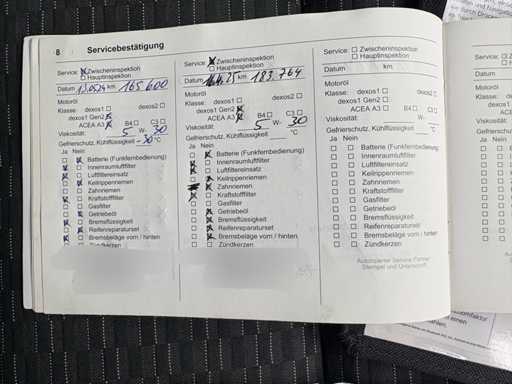 8 Servicebestätigung
Service: Zwischeninspektion
Hauptinspektion
Datum 13.05.24 km 165 600
Motoröl
Klasse: dexos1 dexos2
dexos1 Gen2
ACEA A3 B4 C3
Viskosität: 5 W- 30
Gefrierschutz, Kühlflüssigkeit -30 °C
Ja Nein
Batterie (Funkfernbedienung)
Innenraumluftfilter
Luftfiltereinsatz
Keilrippenriemen
Zahnriemen
Kraftstofffilter
Gasfilter
Getriebeöl
Bremsflüssigkeit
Reifenreparaturset
Bremsbeläge vorn / hinten
Zündkerzen
Service: Zwischeninspektion
Hauptinspektion
Datum km 183 764
Motoröl
Klasse: dexos1 dexos2
dexos1 Gen2
ACEA A3 B4 C3
Viskosität: 5 W- 30
Gefrierschutz, Kühlflüssigkeit °C
Ja Nein
Batterie (Funkfernbedienung)
Innenraumluftfilter
Luftfiltereinsatz
Keilrippenriemen
Zahnriemen
Kraftstofffilter
Gasfilter
Getriebeöl
Bremsflüssigkeit
Reifenreparaturset
Bremsbeläge vorn / hinten
Zündkerzen
Service: Zwischeninspektion
Hauptinspektion
Datum km
Motoröl
Klasse: dexos1 dexos2
dexos1 Gen2
ACEA A3 B4 C3
Viskosität: W-
Gefrierschutz, Kühlflüssigkeit °C
Ja Nein
Batterie (Funkfernbedienung)
Innenraumluftfilter
Luftfiltereinsatz
Keilrippenriemen
Zahnriemen
Kraftstofffilter
Gasfilter
Getriebeöl
Bremsflüssigkeit
Reifenreparaturset
Bremsbeläge vorn / hinten
Zündkerzen
Autorisierter Service Partner
Stempel und Unterschrift
Service
Datum
Motoröl
Klasse:
Viskosität
Gefriersch
Ja Nein